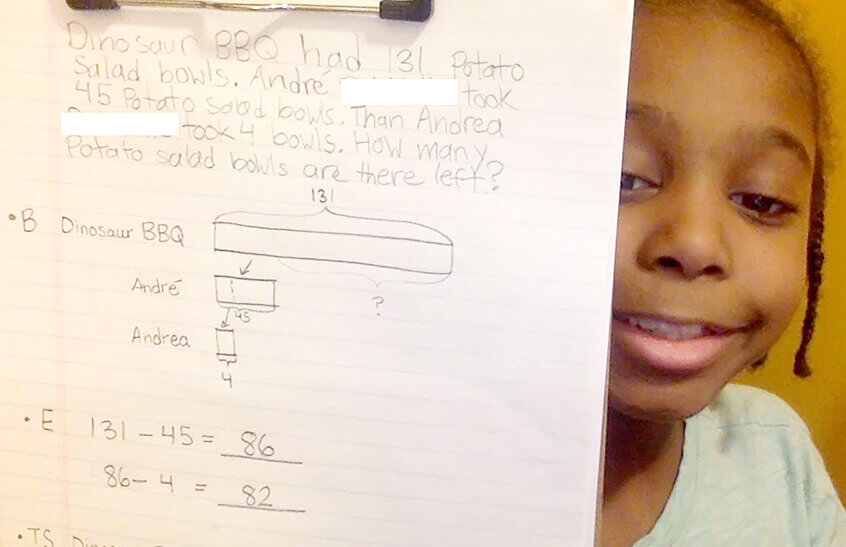 Dinosaur BBQ had 131 Potato
Salad bowls. André took
45 Potato salad bowls. Than Andrea
took 4 bowls. How many
Potato salad bowls are there left?
131
• B Dinosaur BBQ
André
?
45
Andrea
4
• E 131 - 45 = 86
86 - 4 = 82
• TS